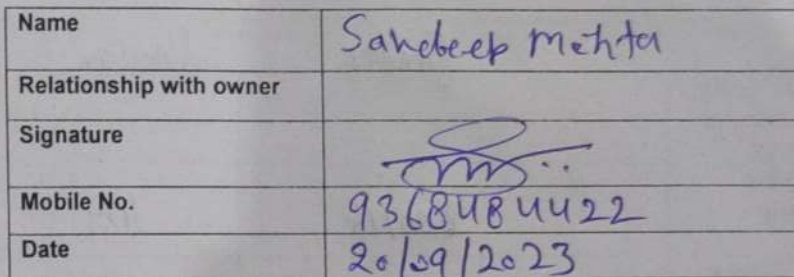 Name Sandeep Mehta
Relationship with owner
Signature
Mobile No. 9368484422
Date 20/09/2023